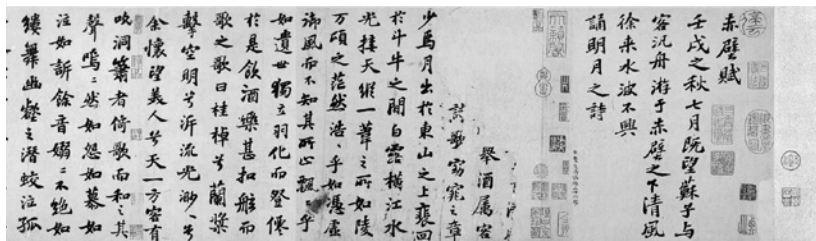 赤壁賦
壬戌之秋七月既望蘇子与
客汎舟游于赤壁之下清風
徐来水波不興
誦明月之詩
舉酒属客
歌窈窕之章
少焉月出於東山之上裵回
於斗牛之間白露橫江水
光接天縱一葦之所如陵
万頃之茫然浩〻乎如憑虛
御風而不知其所止飄〻乎
如遺世獨立羽化而登僊
於是飲酒樂甚扣舷而
歌之歌曰桂棹兮蘭槳
擊空明兮泝流光渺〻兮
余懷望美人兮天一方客有
吹洞簫者倚歌而和之其
聲嗚〻然如怨如慕如
泣如訴餘音嫋〻不絕如
縷舞幽壑之潛蛟泣孤